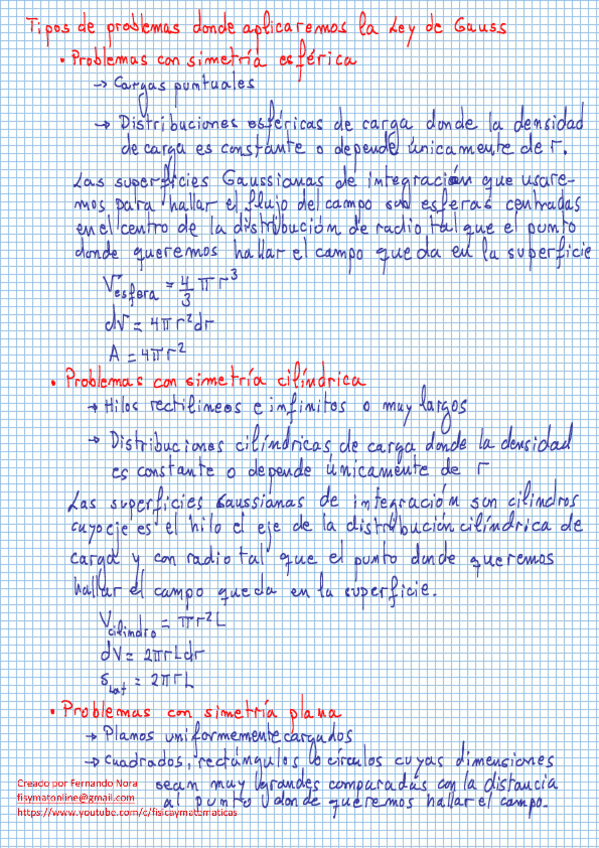 Tipos de problemas donde aplicaremos la Ley de Gauss
• Problemas con simetría esférica
→ Cargas puntuales
→ Distribuciones esféricas de carga donde la densidad
de carga es constante o depende únicamente de r.
Las superficies Gaussianas de integración que usare-
mos para hallar el flujo del campo son esferas centradas
en el centro de la distribución de radio tal que el punto
donde queremos hallar el campo queda en la superficie
Vesfera = 4/3 π r³
dV = 4πr²dr
A = 4πr²
• Problemas con simetría cilíndrica
→ Hilos rectilineos e infinitos o muy largos
→ Distribuciones cilíndricas de carga donde la densidad
es constante o depende únicamente de r
Las superficies Gaussianas de integración son cilindros
cuyo eje es el hilo el eje de la distribución cilíndrica de
carga y con radio tal que el punto donde queremos
hallar el campo queda en la superficie.
Vcilindro = πr²L
dV = 2πrLdr
SLat = 2πrL
• Problemas con simetría plana
→ Planos uniformemente cargados
→ Cuadrados, rectángulos o círculos cuyas dimensiones
sean muy grandes comparadas con la distancia
al punto donde queremos hallar el campo.
Creado por Fernando Nora
fisymatonline@gmail.com
https://www.youtube.com/c/fisicaymatematicas